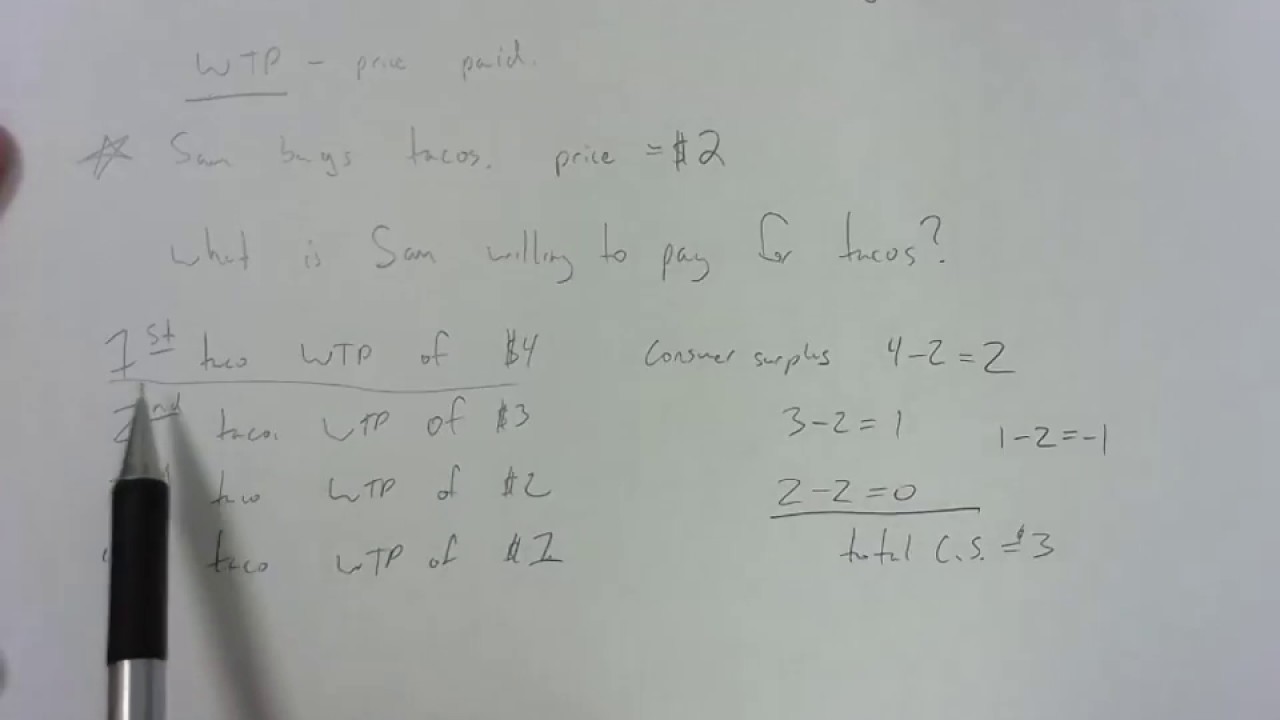 WTP – price paid.
Sam buys tacos. price = $2
What is Sam willing to pay for tacos?
1st taco WTP of $4 Consumer surplus 4-2=2
2nd taco. WTP of $3 3-2=1 1-2=-1
taco WTP of $2 2-2=0
taco WTP of $1 total C.S. = $3